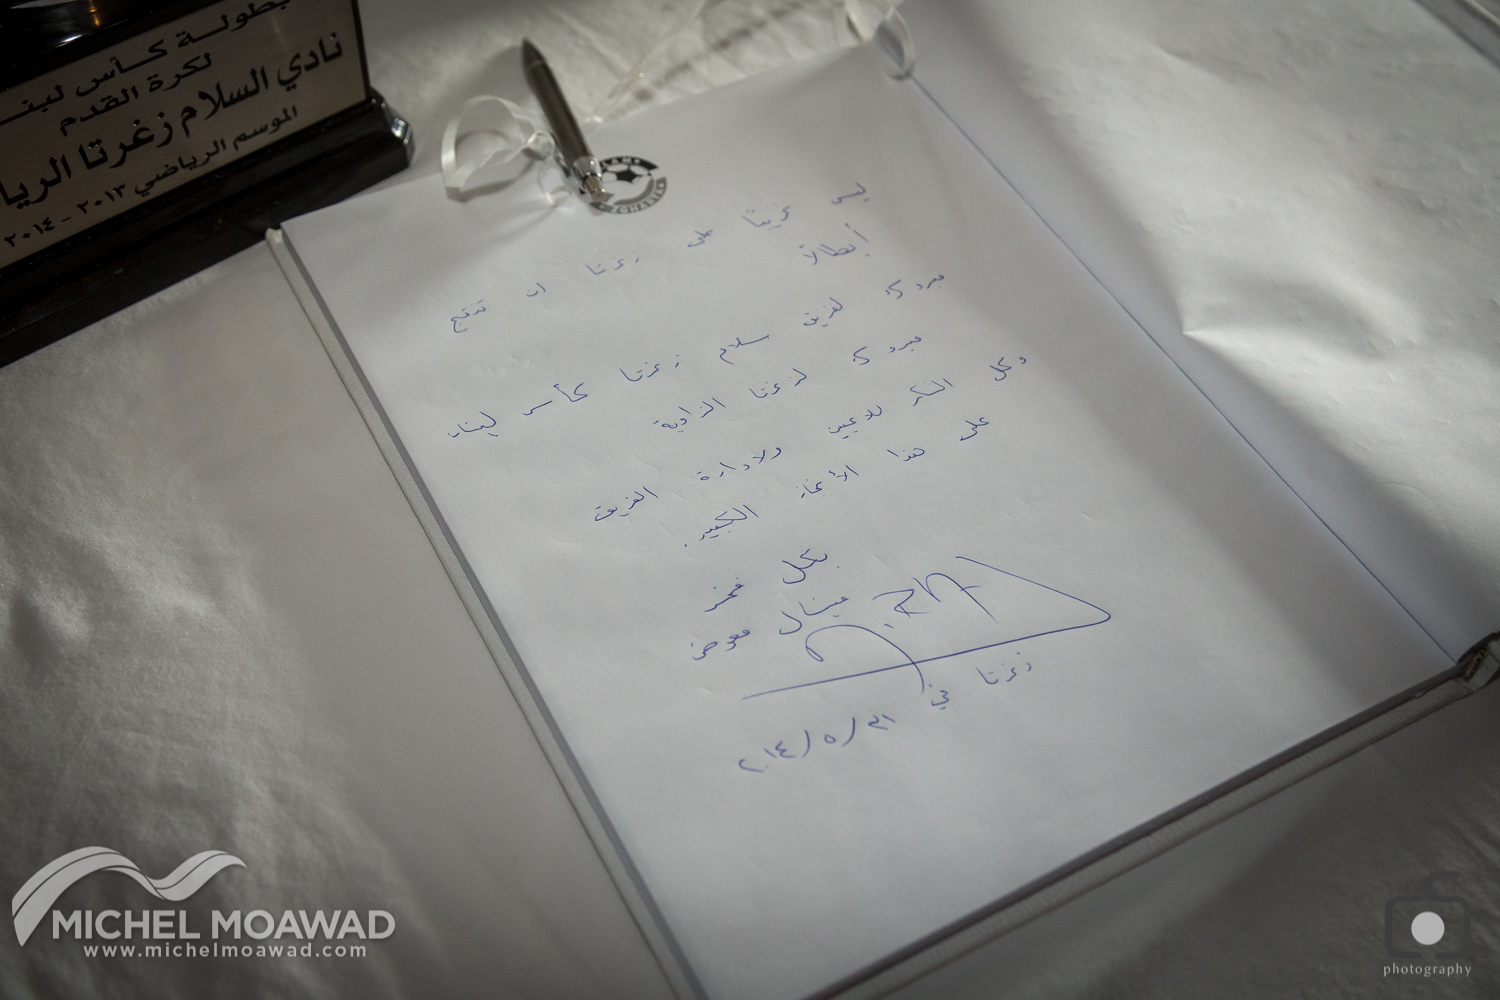 بطولة كأس لبنـ
لكرة القدم
نادي السلام زغرتا الريا
الموسم الرياضي ٢٠١٣ - ٢٠١٤
ZGHARTA
ليس غريبًا على زغرتا ان تنتج
أبطالاً
مبروك لفريق سلام زغرتا كأس لبنان
مبروك لزغرتا الزاوية
وكل الشكر للاعبين ولادارة الفريق
على هذا الأنجاز الكبير.
بكل فخر
ميشال معوض
زغرتا في
٢٠١٤/٥/٣١
MICHEL MOAWAD
www.michelmoawad.com
photography